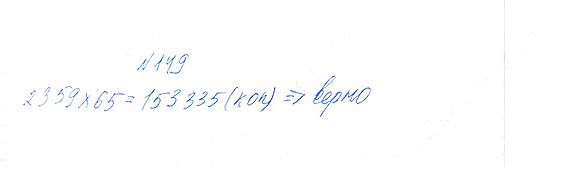 №149
2359х65=153335(коп) => верно